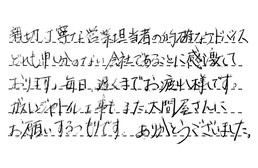 親切、丁寧な営業担当者の的確なアドバイス
どれも申し分のない会社であることに感激して
おります。毎日、遅くまでお疲れ様です。
がんどやトイレ工事も、また大問屋さんに
お願いするつもりです。ありがとうございました。